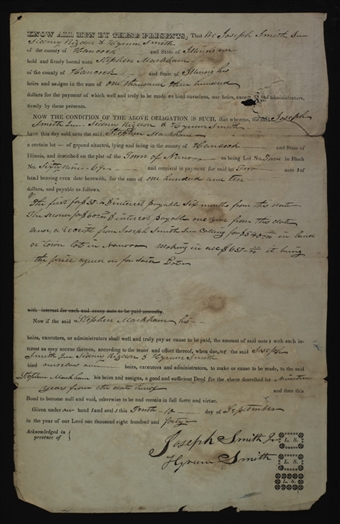 KNOW ALL MEN BY THESE PRESENTS, That We Joseph Smith Jun
Sidney Rigdon & Hyrum Smith
of the county of Hancock and State of Illinois are
held and firmly bound unto Stephen Markham
of the county of Hancock State of Illinois his
heirs and assigns in the sum of one thousand three hundred
dollars for the payment of which well and truly to be made we bind ourselves, our heirs, executors and administrators,
firmly by these presents.
NOW THE CONDITION OF THE ABOVE OBLIGATION IS SUCH, that whereas, the said Joseph
Smith Jun Sidney Rigdon & Hyrum Smith
have this day sold unto the said Stephen Markham
a certain lot of ground situated, lying and being in the county of Hancock and State of
Illinois, and described on the plat of the Town of Nauvoo as being Lot No. in Block
and received in payment for said lot note of
hand bearing even date herewith, for the sum of one hundred and ten
dollars, and payable as follows.
The first for $50 & interest payable six months from this date
The second for $60 & interest payable one year from this date
Also, a from Joseph Smith Jun Calling for in land
or town lots in Nauvoo making in all it being
the price agreed on for said Lots
with interest for each and every note to be paid annually.
Now if the said Stephen Markham his
heirs, executors, or administrators shall well and truly pay or cause to be paid, the amount of said note with such in-
terest as may accrue thereon, according to the tenor and effect thereof, when due, we the said Joseph
Smith Jun Sidney Rigdon & Hyrum Smith
bind ourselves our heirs, executors and administrators, to make or cause to be made, to the said
Stephen Markham his heirs and assigns, a good and sufficient Deed for the above described lot
years from the date and then this
Bond to become null and void, otherwise to be and remain in full force and virtue.
Given under our hand and seal this Tenth day of September
in the year of our Lord one thousand eight hundred and forty
Acknowledged in
presence of
Joseph Smith Jr L. S.
Hyrum Smith L. S.
L. S.